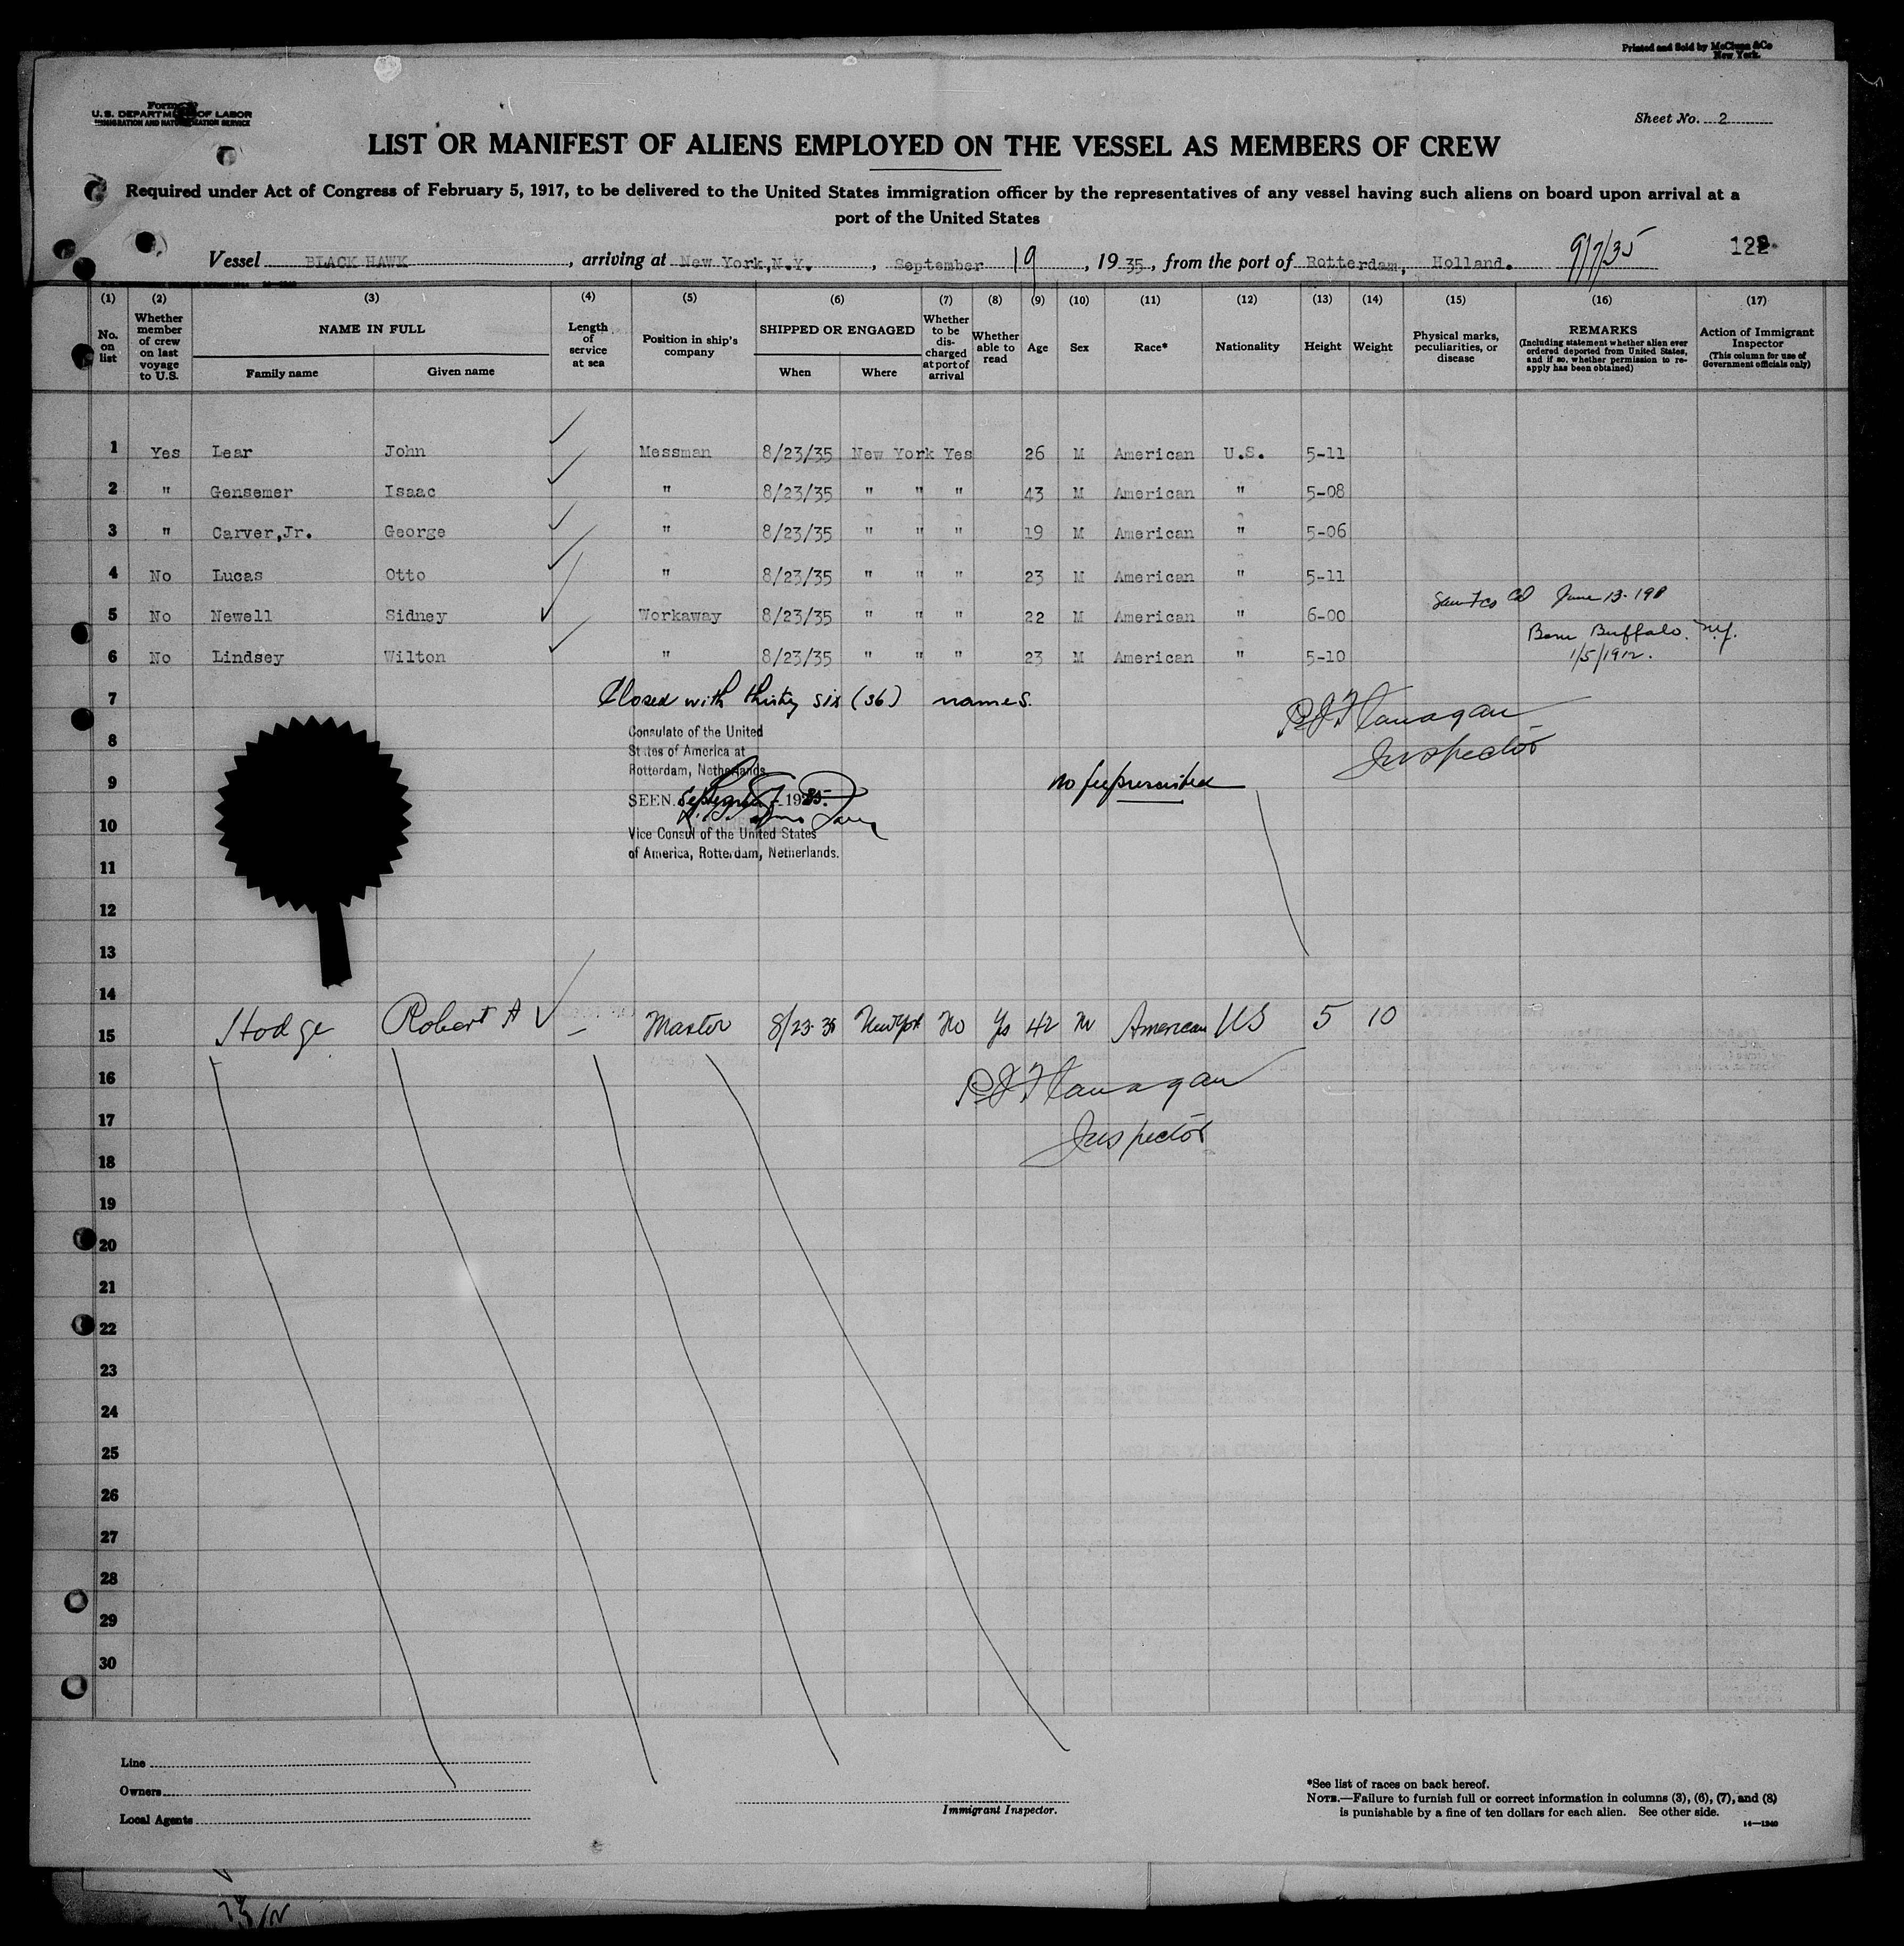 Printed and Sold by McClunn &Co
New York.
Form
U.S. DEPARTMENT OF LABOR
IMMIGRATION AND NATURALIZATION SERVICE
Sheet No. 2
LIST OR MANIFEST OF ALIENS EMPLOYED ON THE VESSEL AS MEMBERS OF CREW
Required under Act of Congress of February 5, 1917, to be delivered to the United States immigration officer by the representatives of any vessel having such aliens on board upon arrival at a
port of the United States
Vessel BLACK HAWK, arriving at New York,N.Y., September 19, 1935, from the port of Rotterdam, Holland. 9/7/35 122
(1) (2) (3) (4) (5) (6) (7) (8) (9) (10) (11) (12) (13) (14) (15) (16) (17)
No. on list
Whether member of crew on last voyage to U.S.
NAME IN FULL
Family name
Given name
Length of service at sea
Position in ship's company
SHIPPED OR ENGAGED
When
Where
Whether to be discharged at port of arrival
Whether able to read
Age
Sex
Race*
Nationality
Height
Weight
Physical marks, peculiarities, or disease
REMARKS
(Including statement whether alien ever ordered deported from United States, and if so, whether permission to reapply has been obtained)
Action of Immigrant Inspector
(This column for use of Government officials only)
1 Yes Lear John Messman 8/23/35 New York Yes 26 M American U.S. 5-11
2 " Gensemer Isaac " 8/23/35 " " " 43 M American " 5-08
3 " Carver,Jr. George " 8/23/35 " " " 19 M American " 5-06
4 No Lucas Otto " 8/23/35 " " " 23 M American " 5-11
5 No Newell Sidney Workaway 8/23/35 " " " 22 M American " 6-00 San Fco Cal June 13-
6 No Lindsey Wilton " 8/23/35 " " " 23 M American " 5-10 Born Buffalo. N.Y. 1/5/1912.
7 Closed with thirty six (36) names.
P J Flanagan
Inspector
8
Consulate of the United
States of America at
Rotterdam, Netherlands
9
No fee prescribed
SEEN September 7 1935.
10
Vice Consul of the United States
of America, Rotterdam, Netherlands.
11
12
13
14
15 Hodge Robert A Master 8/23-35 New York No Yes 42 M American US 5 10
16 P J Flanagan
17 Inspector
18
19
20
21
22
23
24
25
26
27
28
29
30
Line
Owners
Local Agents
Immigrant Inspector.
*See list of races on back hereof.
NOTE.—Failure to furnish full or correct information in columns (3), (6), (7), and (8)
is punishable by a fine of ten dollars for each alien. See other side.
14—1240